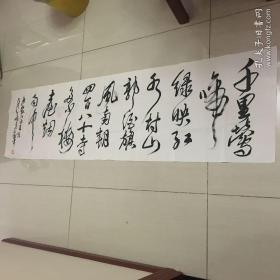 千里莺
啼
绿映红
水村山
郭酒旗
风南朝
四百八十寺
多少楼
台烟
雨中